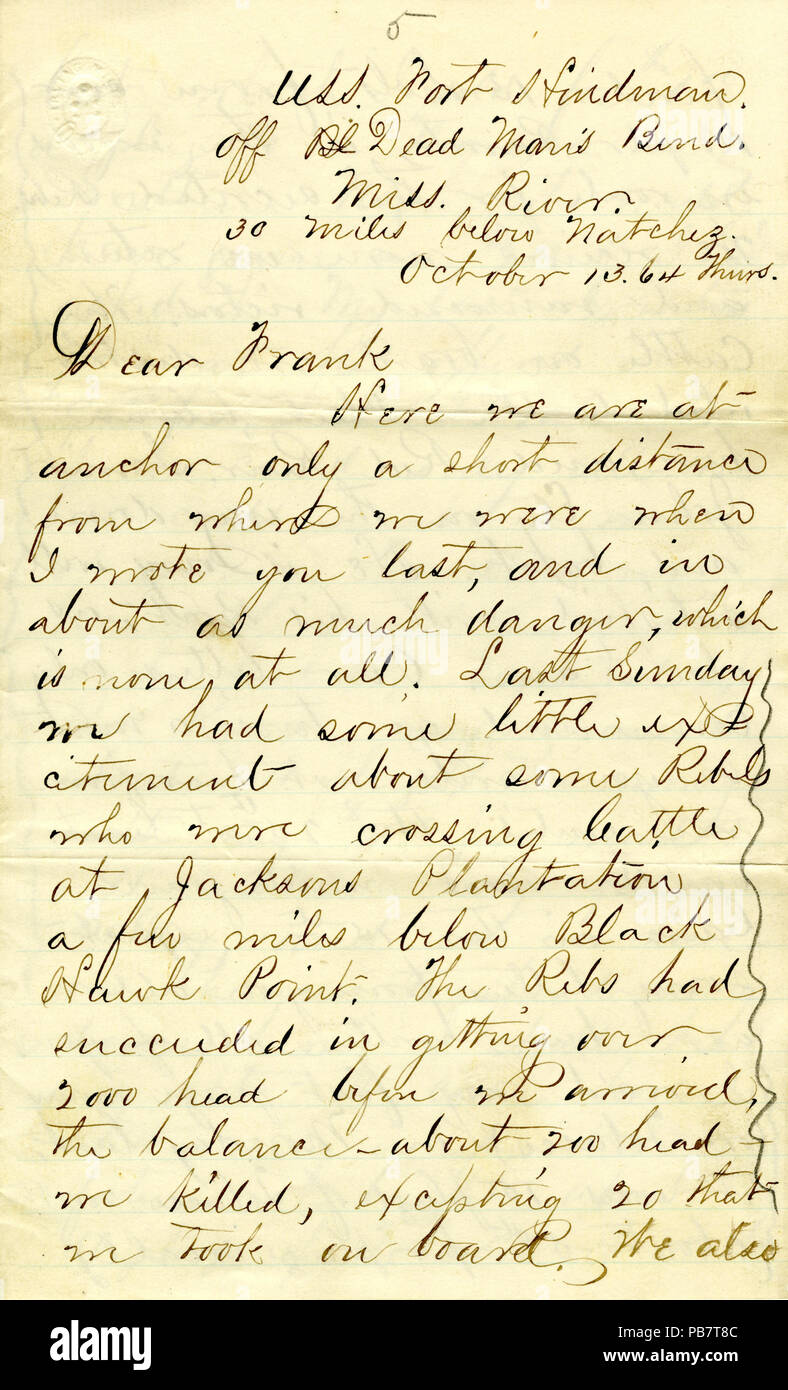 5
USS. Fort Hindman.
off Bl Dead Man's Bend.
Miss. River.
30 miles below Natchez.
October 13. 64 Thurs.
Dear Frank
Here we are at
anchor only a short distance
from where we were when
I wrote you last, and in
about as much danger, which
is none at all. Last Sunday
we had some little ex-
citement about some Rebels
who were crossing Cattle
at Jacksons Plantation
a few miles below Black
Hawk Point. The Rebs had
succeeded in getting over
2000 head before we arrived,
the balance - about 200 head -
we killed, excepting 20 that
we took on board. We also
alamy
Image ID: PB7T8C
www.alamy.com